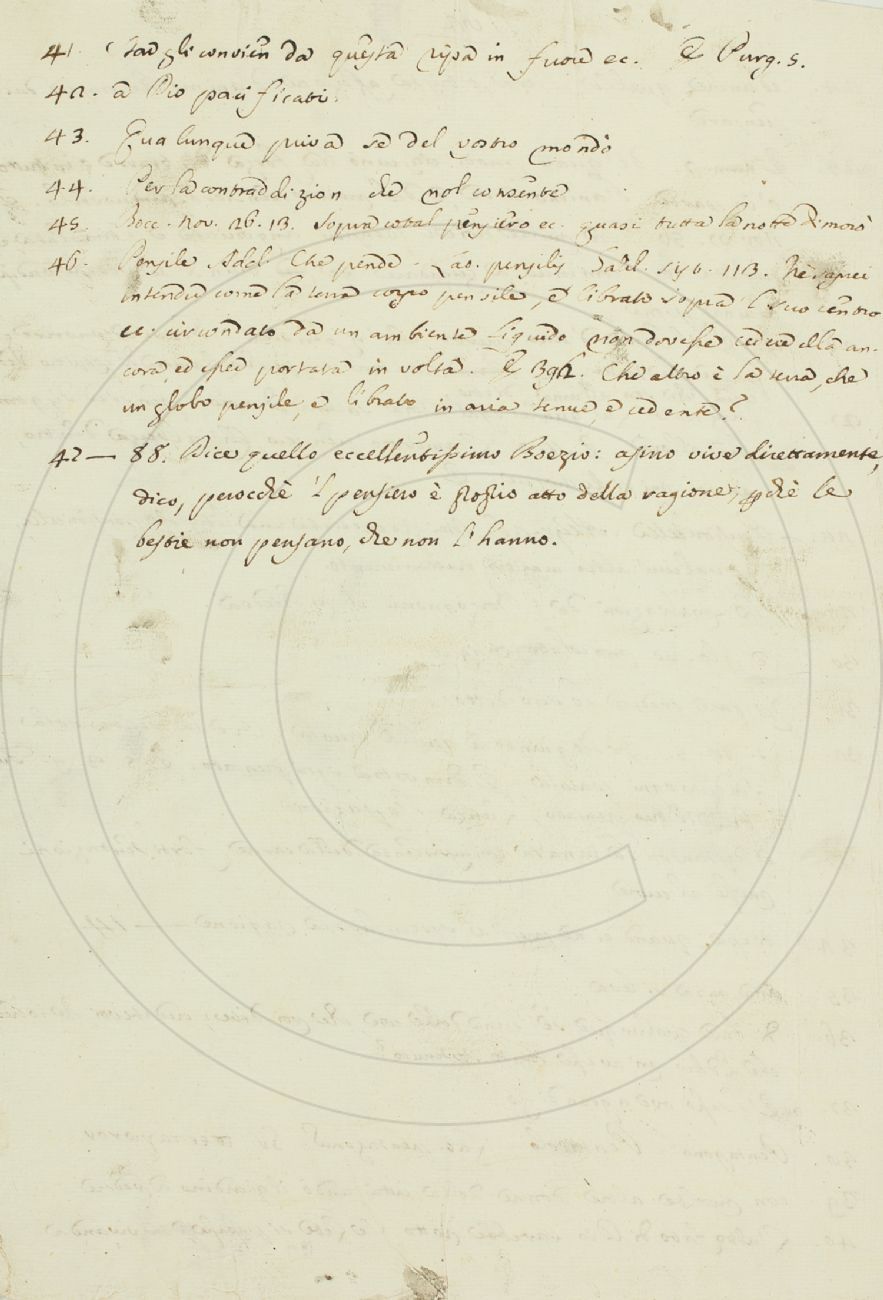 41. Star gli convien da questa ripa in fuore ec. E Purg. 5.
42. a Dio pacificati.
43. Qualunque priva se del vostro mondo
44. Per la contraddizion che nol consente
45. Bocc. Nov. 26. 13. Sopra cotal pensiero ec. quasi tutta la notte dimorò
46. Pensile Add. Che pende. Lat. pensilis Gal. Sist. 113. Nè saprei
intendere come la terra corpo pensile, e librato sopra 'l suo centro
ec. circondato da un ambiente liquido non dovesse cedere ella an-
cora, ed esser portata in volta. E 392. Che altro è la terra, che
un globo pensile, e librato in aria tenue, e cedente?
47 — 88. Dice quello eccellentissimo Boezio: asino vive direttamente,
dico, perocchè 'l pensiero è proprio atto della ragione, perchè le
bestie non pensano, che non l'hanno.